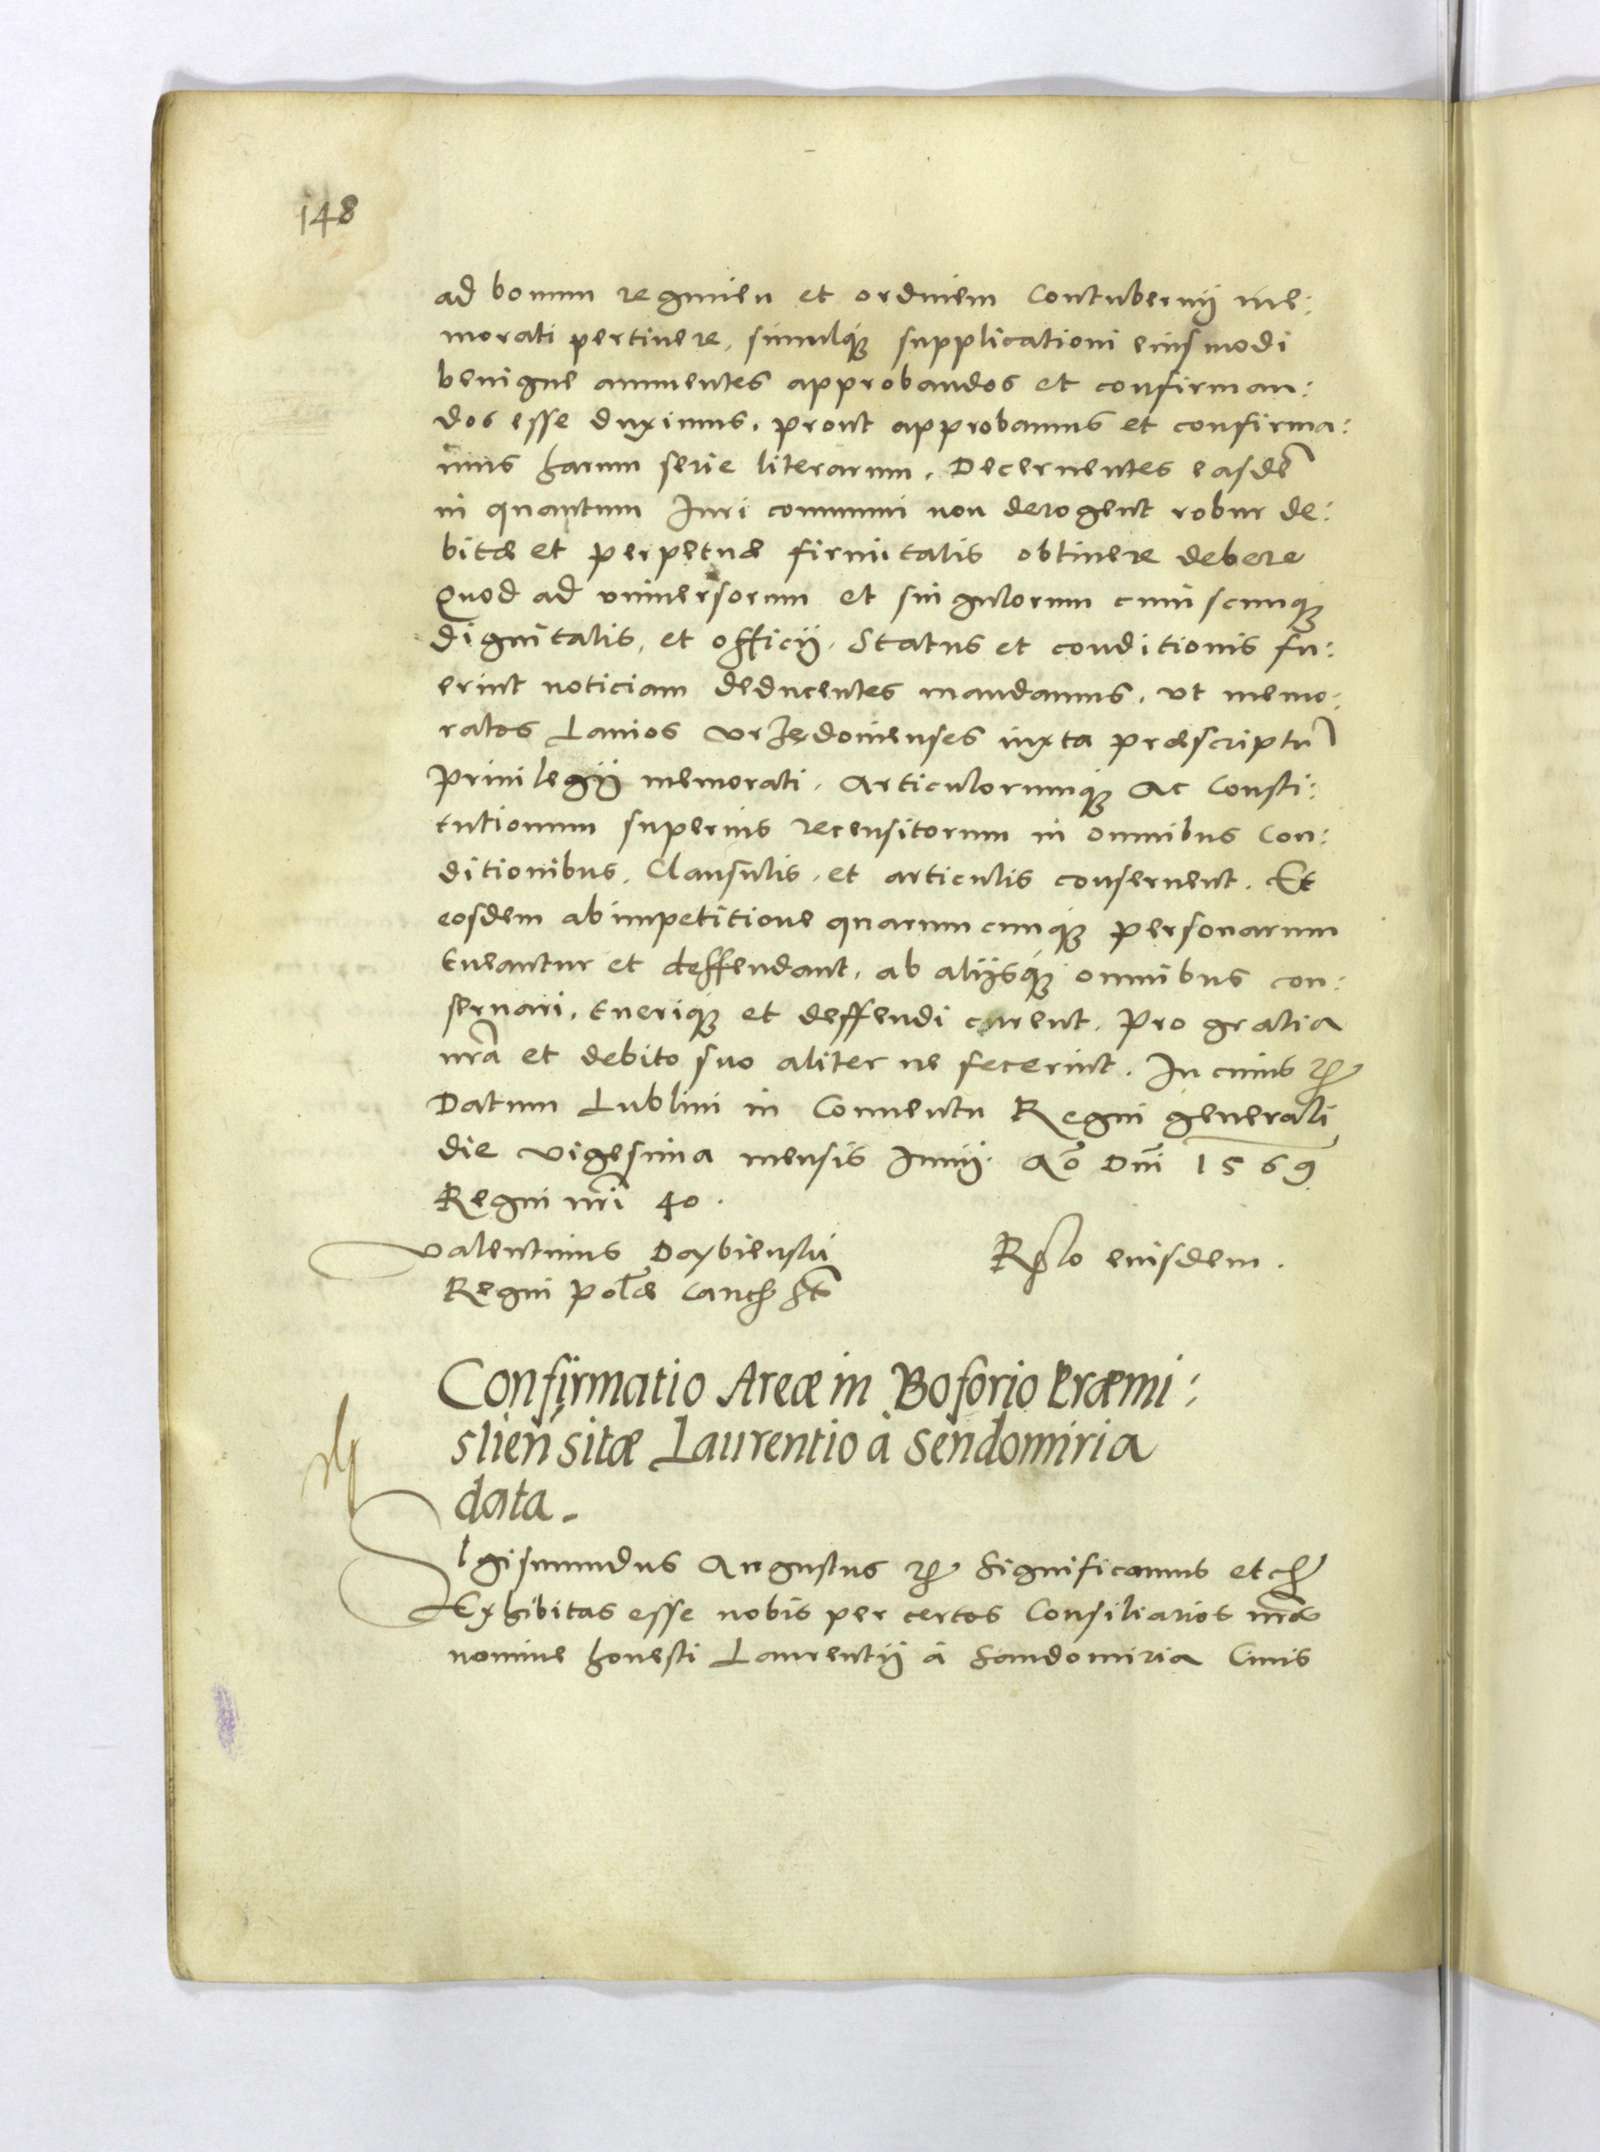 148
ad bonum regimen et ordinem Contubernij me:
morati pertinere, simulq́ꝫ supplicationi eiusmodi
benigne annuentes approbandos et confirman:
dos esse duximus. prout approbamus et confirma:
mus harum serie literarum. Decernentes easdẽ
in quantum Iuri communi non derogent robur de:
bitæ et perpetuæ firmitatis obtinere debere
Quod ad vniuersorum et singulorum cuiuscunqꝫ
dignitatis, et officij. Status et conditionis fu:
erint noticiam deducentes mandamus. vt memo:
ratos Lanios Vrzędouienses iuxta præscriptũ
priuilegij memorati. Articulorumq́ꝫ Ac Consti:
tutionum superius recensitorum in omnibus Con:
ditionibus. Clausulis. et articulis conseruent. Et
eosdem ab impetitione quarumcunq́ꝫ personarum
tueantur et deffendant. ab alijsq́ꝫ omnibus con:
seruari. tueriq́ꝫ et deffendi curent. Pro gratia
nrã et debito suo aliter ne fecerint. In cuius ꝛc̃
Datum Lublini in Conuentu Regni generali
die vigesima mensis Iunij. Aõ Dnĩ 1569
Regni nrĩ 40.
Valentinus Dąybienski
Regni Pol̃æ Canc̃ ss̃t
Rlo eiusdem.
Confirmatio Areæ in Boforio Præmi:
slieñ sitæ Laurentio à Sendomiria
data.
SIgismundus Augustus ꝛc̃ Significamus etc̃
Exhibitas esse nobis per certos Consiliarios nrõs
nomine honesti Laurentij à Sandomiria Ciuis